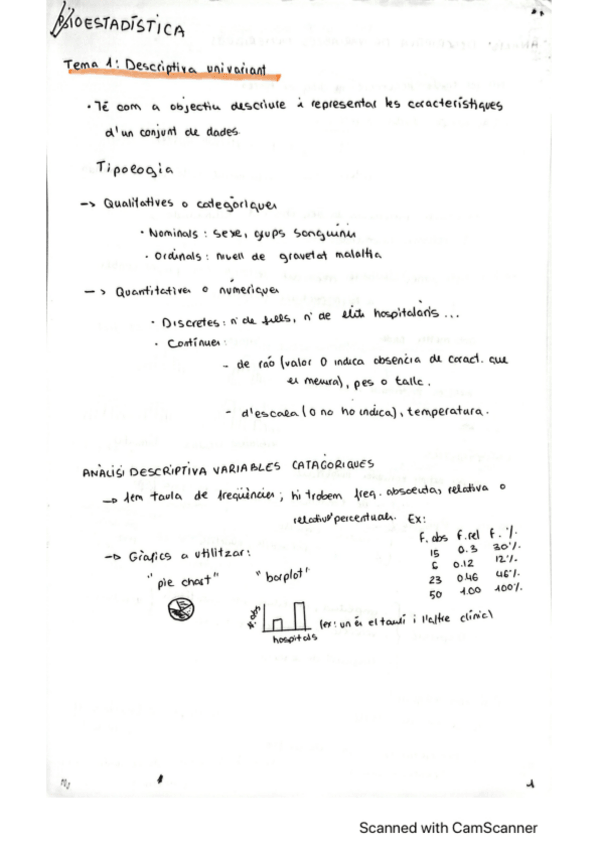 BIOESTADÍSTICA
Tema 1: Descriptiva univariant
· Té com a objectiu descriure i representar les característiques
d'un conjunt de dades
Tipologia
-> Qualitatives o categòriques
· Nominals: sexe, grups sanguinis
· Ordinals: nivell de gravetat malaltia
-> Quantitatives o numèriques
· Discretes: nº de fills, nº de llits hospitalaris ...
· Contínues:
- de raó (valor 0 indica absència de caract. que
es mesura), pes o talla.
- d'escala (0 no ho indica), temperatura.
ANÀLISI DESCRIPTIVA VARIABLES CATAGÒRIQUES
-> 1em taula de freqüències; hi trobem freq. absoluta, relativa o
relativa percentual. Ex:
f. abs f. rel f. %
15 0.3 30%
6 0.12 12%
23 0.46 46%
50 1.00 100%
-> Gràfics a utilitzar:
"pie chart" "barplot"
f. abs
hospitals
(ex: un és el taulí i l'altre clínic)
1
Scanned with CamScanner